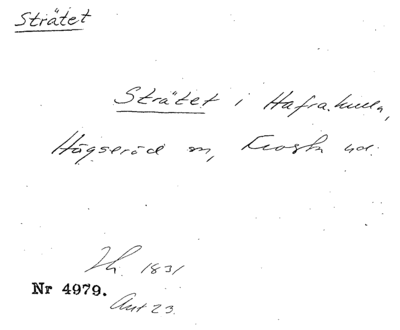 Strätet
Strätet i Hafrakulla,
Högseröd sn, Frosta hd.
1831
Nr 4979.
Akt 23.